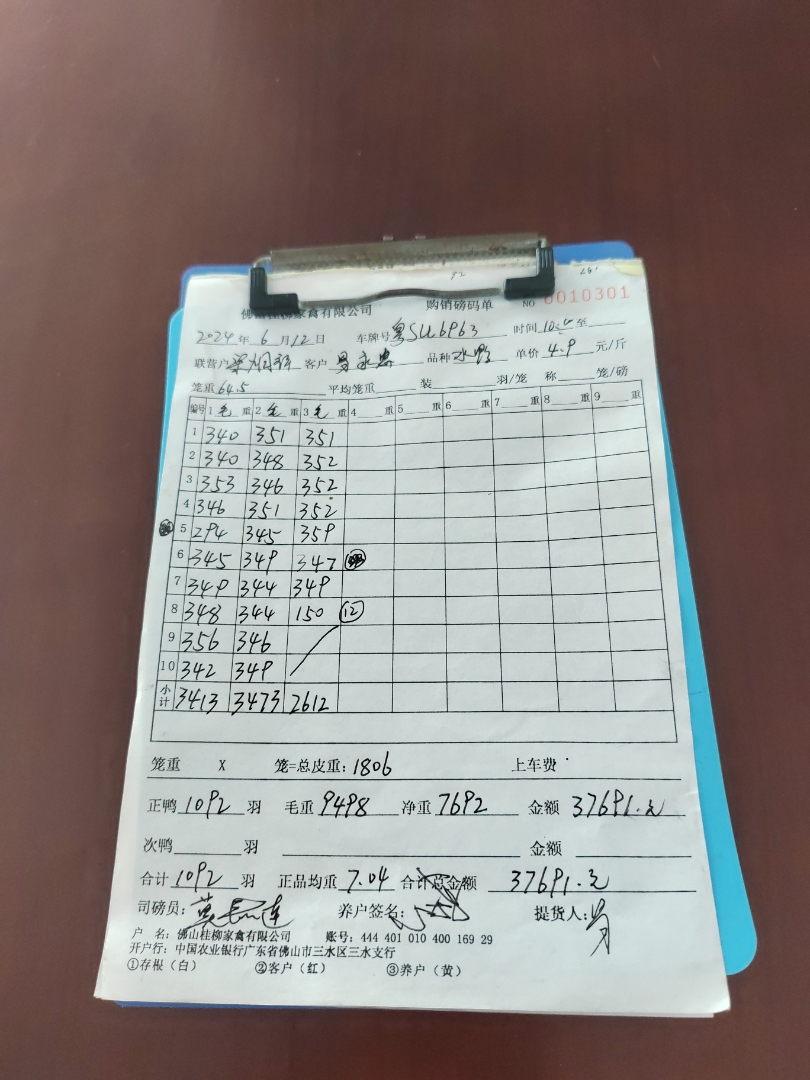 佛山桂柳家禽有限公司 购销磅码单 NO 0010301
2024年6月12日 车牌号 粤SU6P63 时间 至
联营户 客户 品种 水鸭 单价 4.9 元/斤
笼重 64.5 平均笼重 装 羽/笼 称 笼/磅
编号 1 毛 重 2 毛 重 3 毛 重 4 重 5 重 6 重 7 重 8 重 9 重
1 340 351 351
2 340 348 352
3 353 346 352
4 346 351 352
5 294 345 359
6 345 349 347
7 349 344 349
8 348 344 150 12
9 356 346
10 342 349
小计 3413 3473 2612
笼重 X 笼=总皮重: 1806 上车费
正鸭 1092 羽 毛重 9498 净重 7692 金额 37691.元
次鸭 羽 金额
合计 1092 羽 正品均重 7.04 合计总金额 37691.元
司磅员: 养户签名: 提货人:
户 名: 佛山桂柳家禽有限公司 账号: 444 401 010 400 169 29
开户行: 中国农业银行广东省佛山市三水区三水支行
①存根（白） ②客户（红） ③养户（黄）